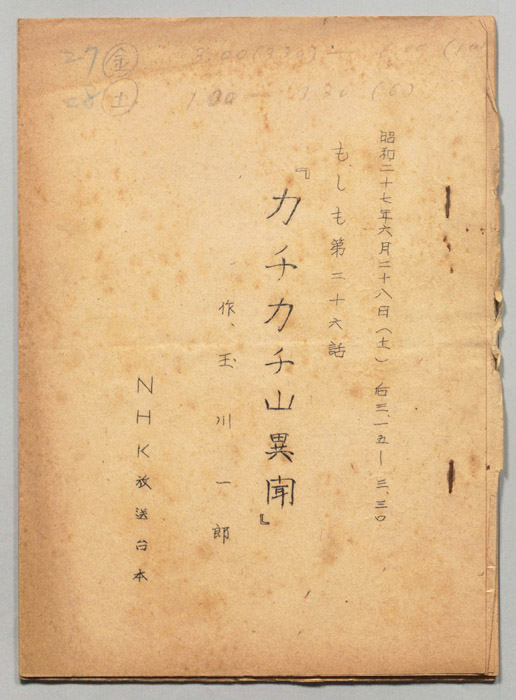 27 ㊎ 3.00
28 ㊏ 1.00 — 1.30 (6)
昭和二十七年六月二十八日(土) 后三、一五—三、三〇
もしも第二十六話
『カチカチ山異聞』
作、玉川一郎
NHK放送台本